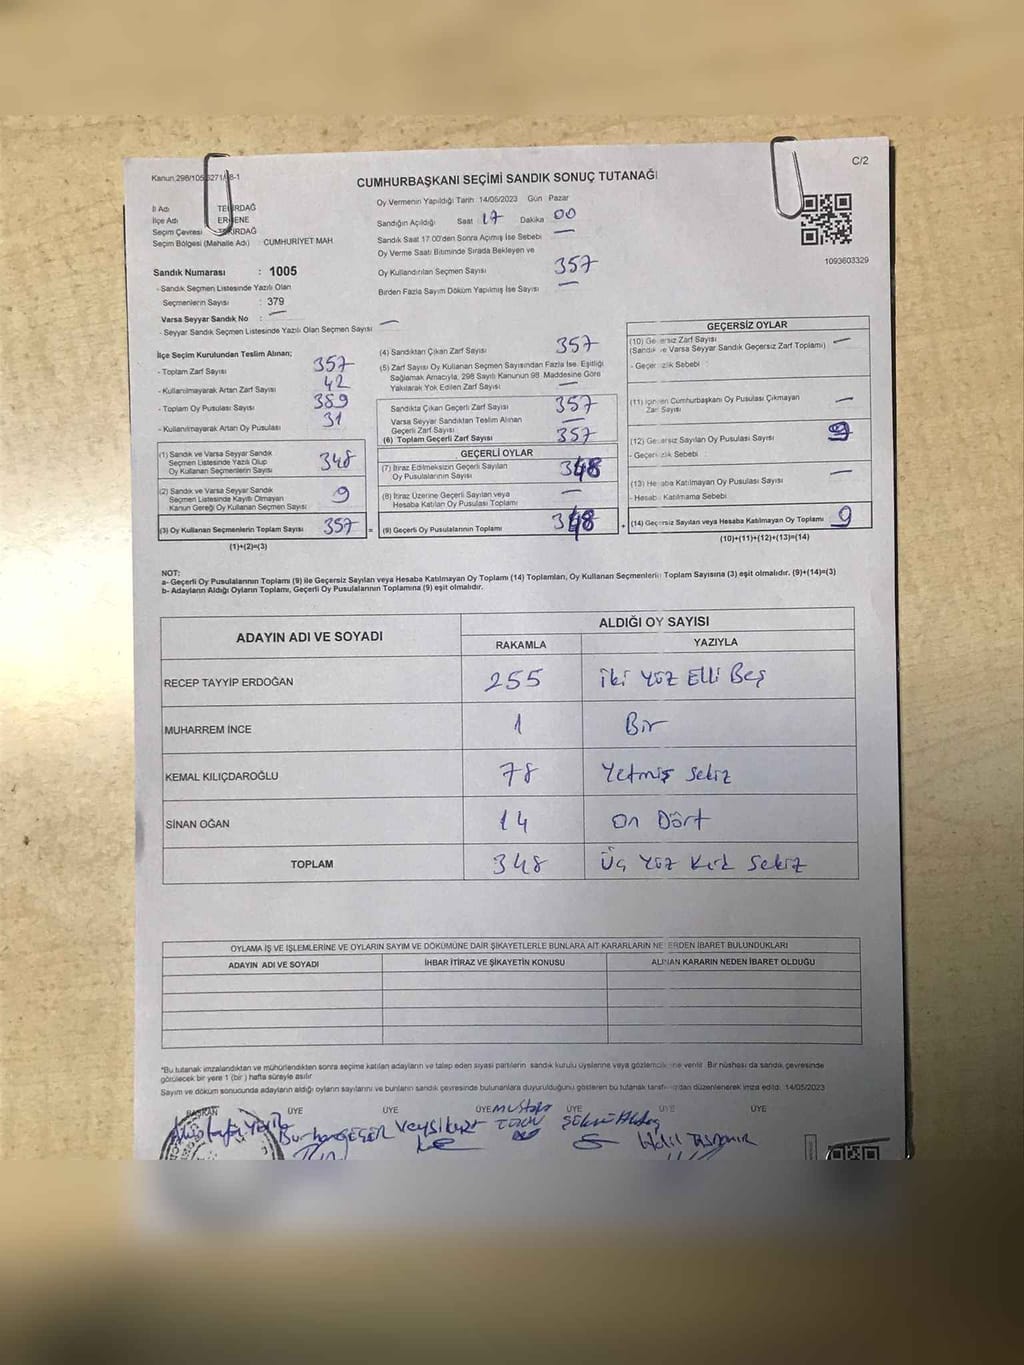 C/2
Kanun,298/105
CUMHURBAŞKANI SEÇİMİ SANDIK SONUÇ TUTANAĞI
Oy Vermenin Yapıldığı Tarih 14/05/2023 Gün Pazar
İl Adı
İlçe Adı
Seçim Çevresi
Seçim Bölgesi (Mahalle Adı) CUMHURİYET MAH
Sandığın Açıldığı Saat 17 Dakika 00
Sandık Saat 17:00'den Sonra Açımış İse Sebebi —
Oy Verme Saati Bitiminde Sırada Bekleyen ve
Oy Kullandırılan Seçmen Sayısı 357
Birden Fazla Sayım Döküm Yapılmış İse Sayısı —
1093603329
Sandık Numarası : 1005
- Sandık Seçmen Listesinde Yazılı Olan
Seçmenlerin Sayısı : 379
Varsa Seyyar Sandık No : —
- Seyyar Sandık Seçmen Listesinde Yazılı Olan Seçmen Sayısı —
İlçe Seçim Kurulundan Teslim Alınan;
- Toplam Zarf Sayısı 357
- Kullanılmayarak Artan Zarf Sayısı 42
- Toplam Oy Pusulası Sayısı 389
- Kullanılmayarak Artan Oy Pusulası 31
(1) Sandık ve Varsa Seyyar Sandık
Seçmen Listesinde Yazılı Olup
Oy Kullanan Seçmenlerin Sayısı 348
(2) Sandık ve Varsa Seyyar Sandık
Seçmen Listesinde Kayıtlı Olmayan
Kanun Gereği Oy Kullanan Seçmen Sayısı 9
(3) Oy Kullanan Seçmenlerin Toplam Sayısı 357 =
(1)+(2)=(3)
(4) Sandıktan Çıkan Zarf Sayısı 357
(5) Zarf Sayısı Oy Kullanan Seçmen Sayısından Fazla İse, Eşitliği
Sağlamak Amacıyla, 298 Sayılı Kanunun 98. Maddesine Göre
Yakılarak Yok Edilen Zarf Sayısı —
Sandıkta Çıkan Geçerli Zarf Sayısı 357
Varsa Seyyar Sandıktan Teslim Alınan
Geçerli Zarf Sayısı —
(6) Toplam Geçerli Zarf Sayısı 357
GEÇERLİ OYLAR
(7) İtiraz Edilmeksizin Geçerli Sayılan
Oy Pusulalarının Sayısı 348
(8) İtiraz Üzerine Geçerli Sayılan veya
Hesaba Katılan Oy Pusulası Toplamı —
(9) Geçerli Oy Pusulalarının Toplamı 348 +
GEÇERSİZ OYLAR
(10) Zarf Sayısı
(Sandık ve Varsa Seyyar Sandık Geçersiz Zarf Toplamı) —
Sebebi :
(11) Cumhurbaşkanı Oy Pusulası Çıkmayan
Zarf Sayısı —
(12) Sayılan Oy Pusulası Sayısı 9
Sebebi :
(13) Katılmayan Oy Pusulası Sayısı —
Katılmama Sebebi
(14) Geçersiz Sayılan veya Hesaba Katılmayan Oy Toplamı 9
(10)+(11)+(12)+(13)=(14)
NOT:
a- Geçerli Oy Pusulalarının Toplamı (9) ile Geçersiz Sayılan veya Hesaba Katılmayan Oy Toplamı (14) Toplamları, Oy Kullanan Seçmenlerin Toplam Sayısına (3) eşit olmalıdır. (9)+(14)=(3)
b- Adayların Aldığı Oyların Toplamı, Geçerli Oy Pusulalarının Toplamına (9) eşit olmalıdır.
ADAYIN ADI VE SOYADI
ALDIĞI OY SAYISI
RAKAMLA YAZIYLA
RECEP TAYYİP ERDOĞAN 255 iki yüz Elli Beş
MUHARREM İNCE 1 Bir
KEMAL KILIÇDAROĞLU 78 Yetmiş Sekiz
SİNAN OĞAN 14 on Dört
TOPLAM 348 Üç yüz Kırk Sekiz
OYLAMA İŞ VE İŞLEMLERİNE VE OYLARIN SAYIM VE DÖKÜMÜNE DAİR ŞİKAYETLERLE BUNLARA AİT KARARLARIN NEDEN İBARET BULUNDUKLARI
ADAYIN ADI VE SOYADI İHBAR İTİRAZ VE ŞİKAYETİN KONUSU ALINAN KARARIN NEDEN İBARET OLDUĞU
*Bu tutanak imzalandıktan ve mühürlendikten sonra seçime katılan adayların ve talep eden siyasi partilerin sandık kurulu üyelerine veya verilir. Bir nüshası da sandık çevresinde
görülecek bir yere 1 (bir) hafta süreyle asılır
Sayım ve döküm sonucunda adayların aldığı oyların sayılarını ve bunların sandık çevresinde bulunanlara duyurulduğunu gösteren bu tutanak düzenlenerek imza edildi. 14/05/2023
BAŞKAN ÜYE ÜYE ÜYE ÜYE ÜYE ÜYE
Mustafa